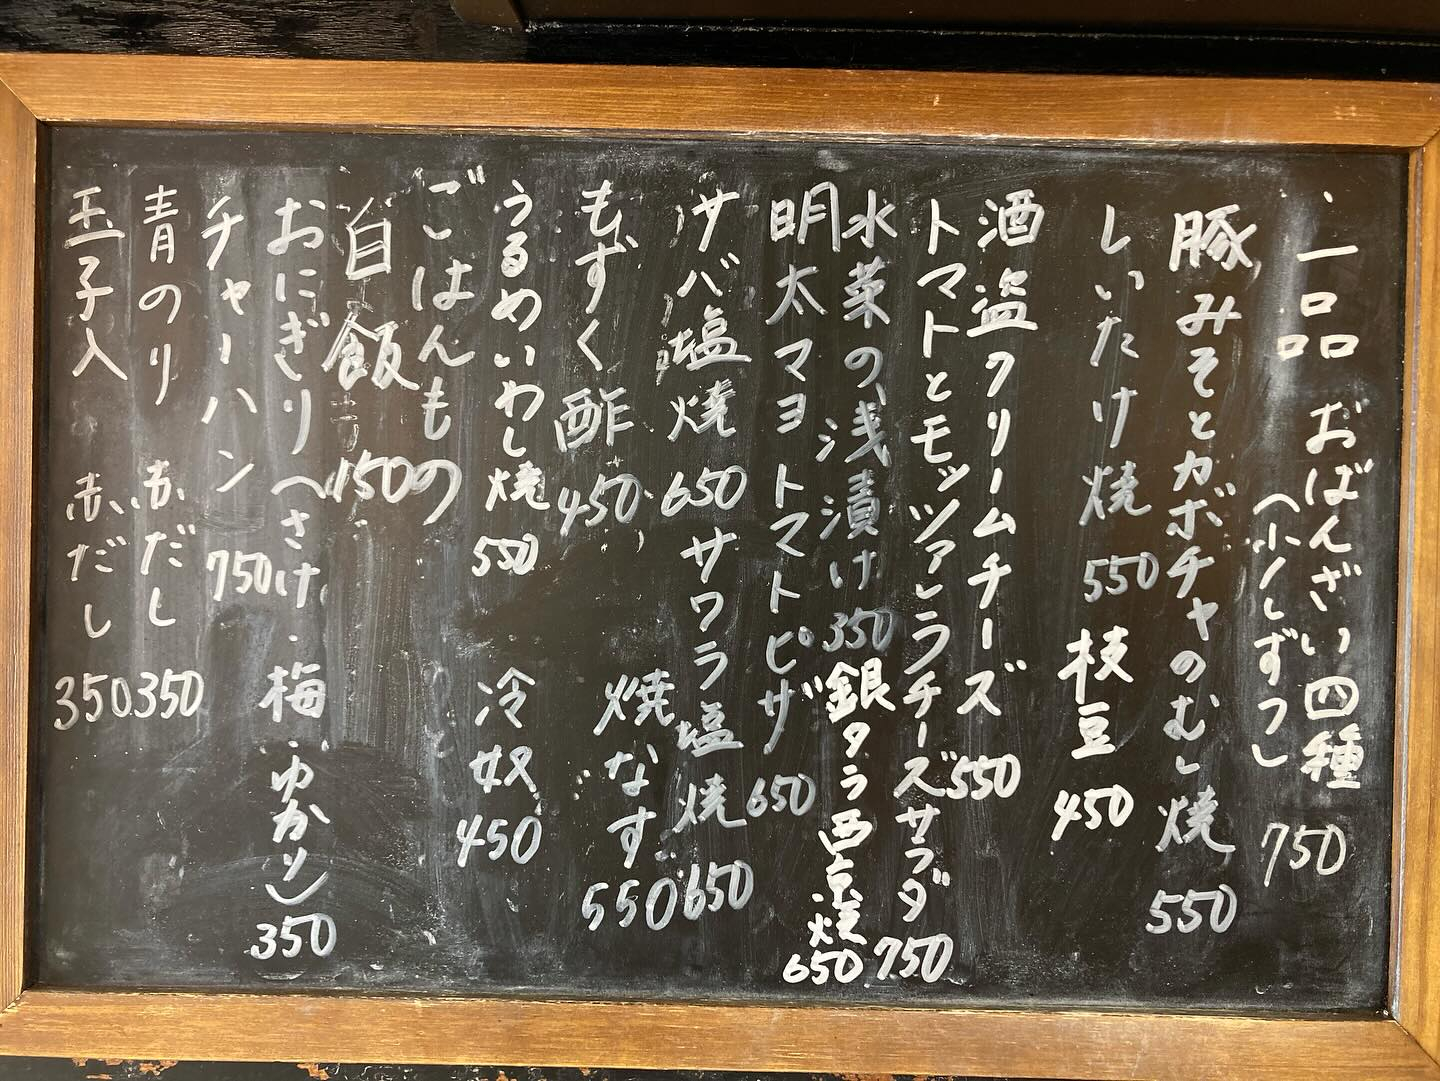 一品 おばんざい四種 750
(少しずつ)
豚みそとカボチャのむし焼 550
しいたけ焼 550 枝豆 450
酒盗クリームチーズ 550
トマトとモッツァレラチーズサラダ 750
水菜の浅漬け 350 銀ダラ西京焼 650
明太マヨトマトピザ 650
サバ塩焼 650 サワラ塩焼 650
もずく酢 450 焼なす 550
うるめいわし焼 550 冷奴 450
ごはんもの
白飯 150
おにぎり(さけ・梅・ゆかり) 350
チャーハン 750
青のり 赤だし 350
玉子入 赤だし 350